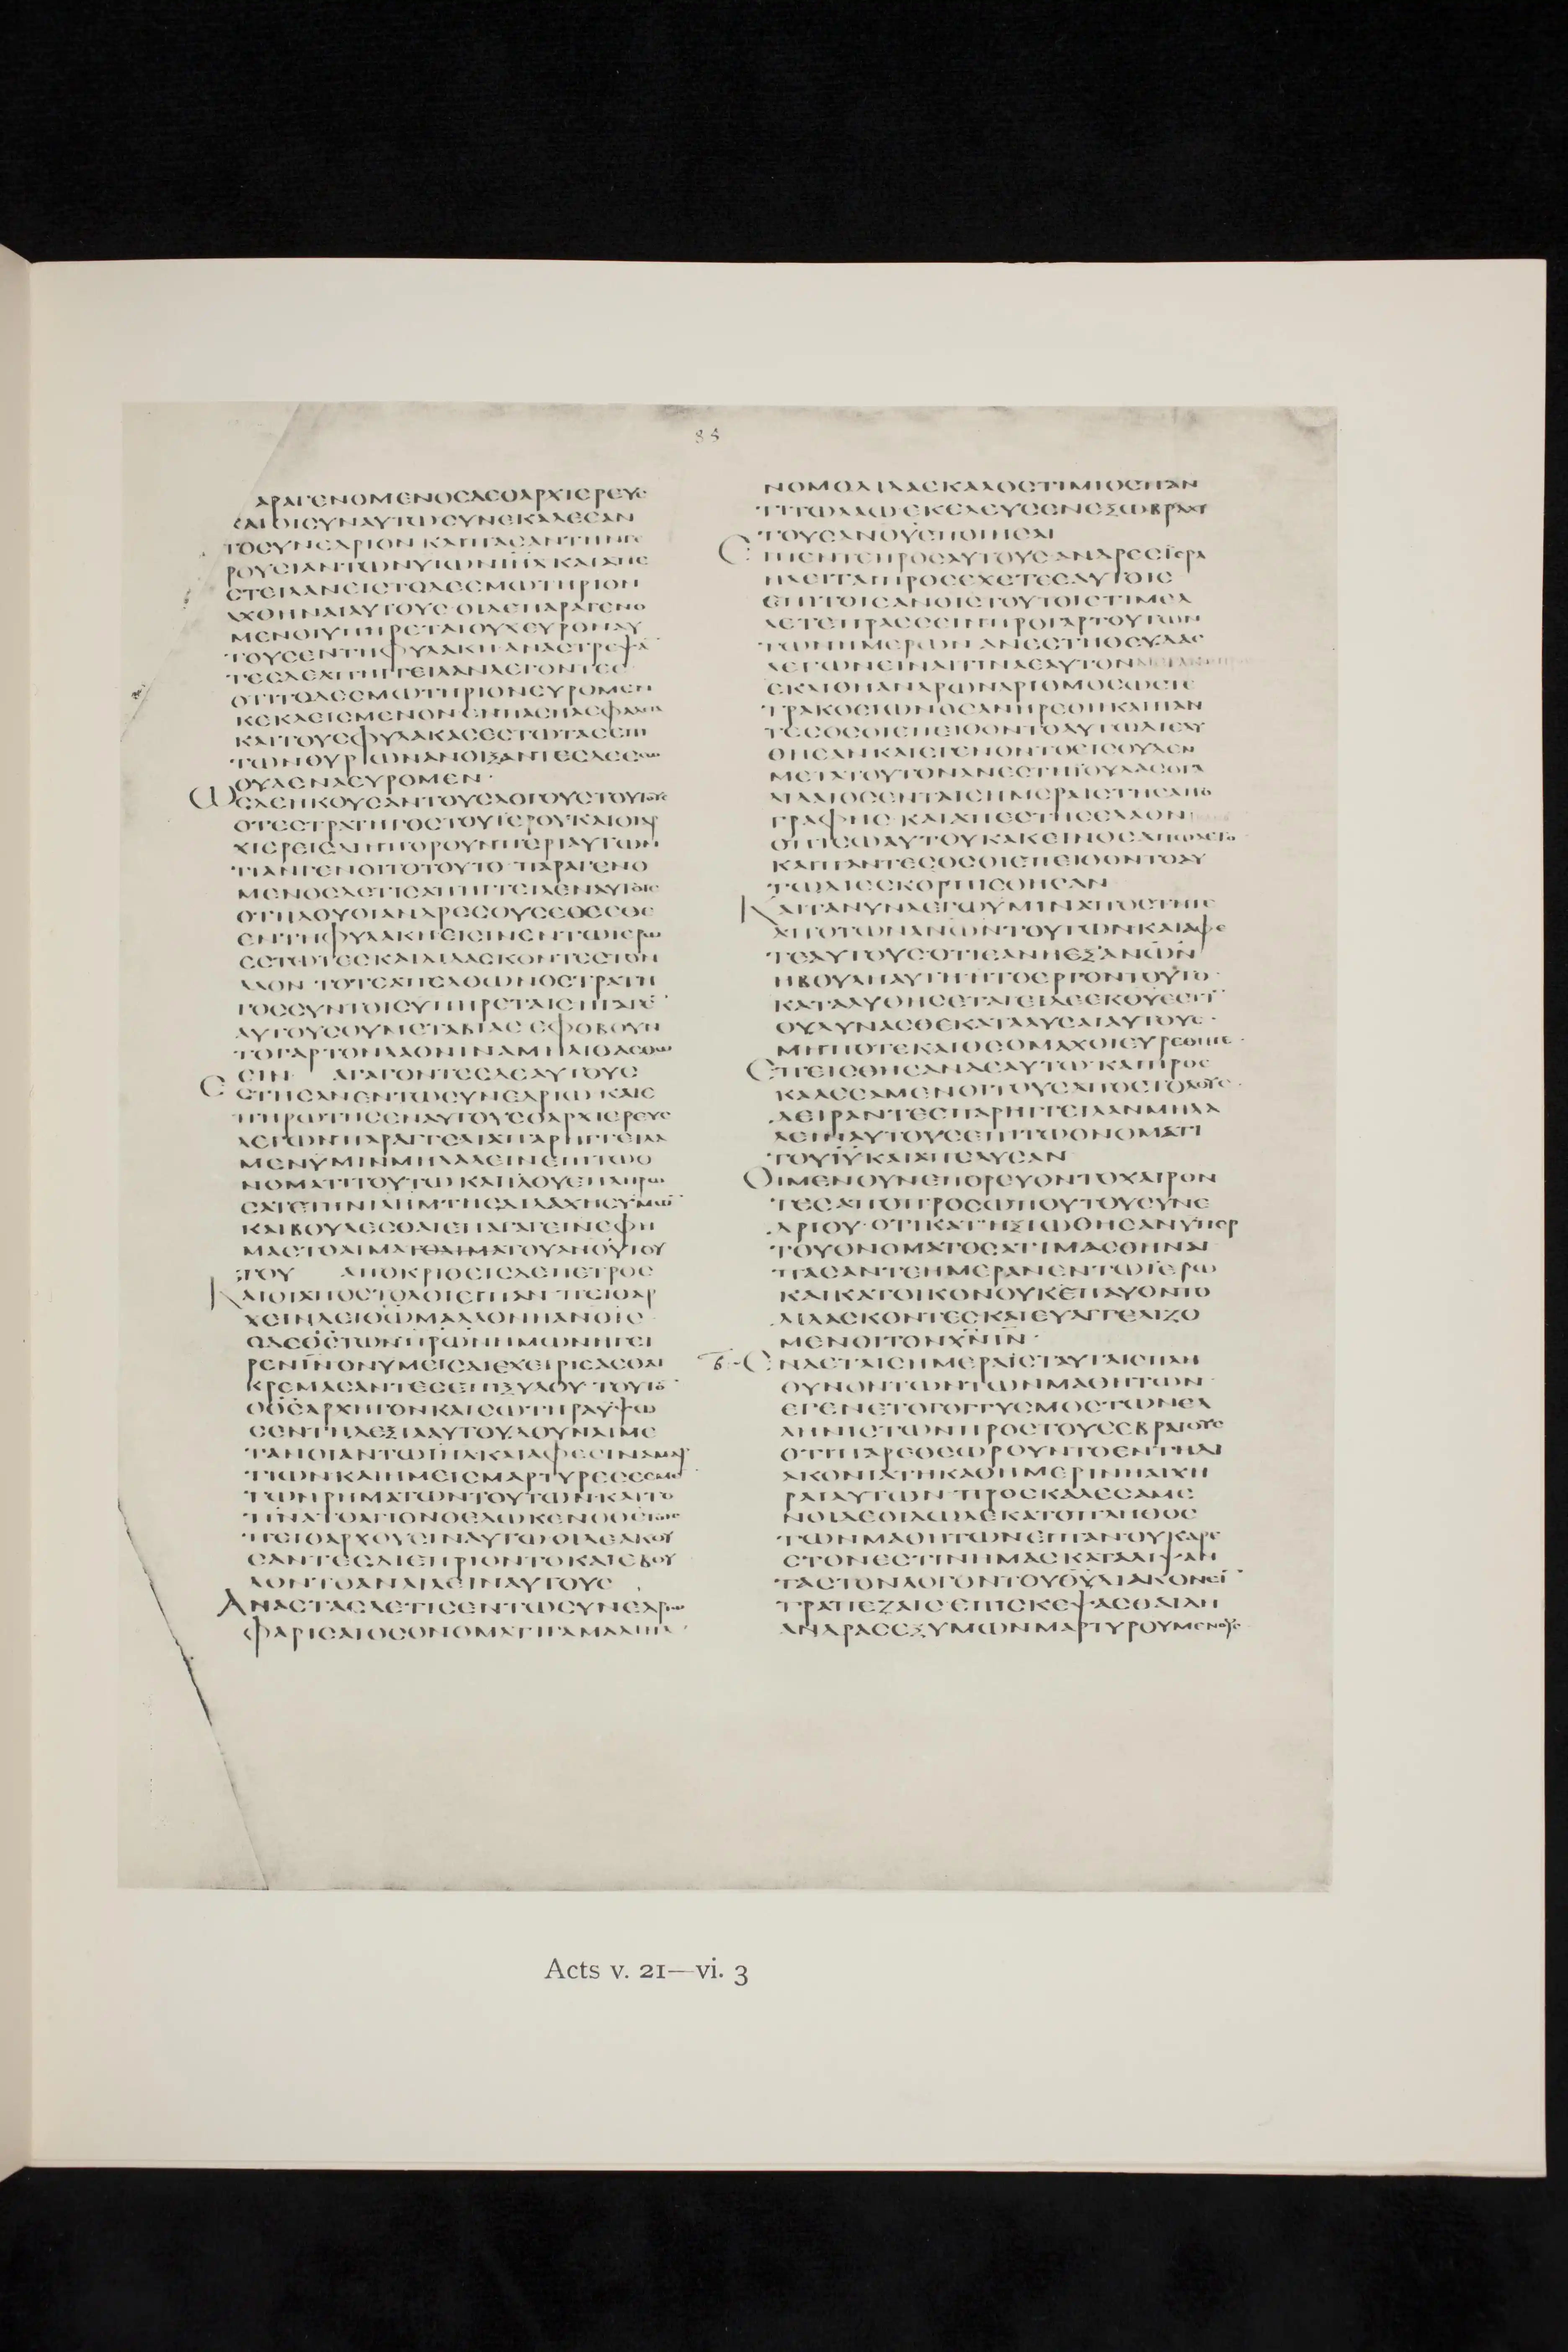 85
ΑΡΑΓΕΝΟΜΕΝΟΣΔΕΟΑΡΧΙΕΡΕΥΣ
ΚΑΙΟΙΣΥΝΑΥΤΩΣΥΝΕΚΑΛΕΣΑΝ
ΤΟΣΥΝΕΔΡΙΟΝΚΑΙΠΑΣΑΝΤΗΝΓΕ
ΡΟΥΣΙΑΝΤΩΝΥΙΩΝΙΗΛΚΑΙΑΠΕ
ΣΤΕΙΛΑΝΕΙΣΤΟΔΕΣΜΩΤΗΡΙΟΝ
ΑΧΘΗΝΑΙΑΥΤΟΥΣ·ΟΙΔΕΠΑΡΑΓΕΝΟ
ΜΕΝΟΙΥΠΗΡΕΤΑΙΟΥΧΕΥΡΟΝΑΥ
ΤΟΥΣΕΝΤΗΦΥΛΑΚΗΑΝΑΣΤΡΕΨΑ
ΤΕΣΔΕΑΠΗΓΓΕΙΛΑΝΛΕΓΟΝΤΕΣ
ΟΤΙΤΟΔΕΣΜΩΤΗΡΙΟΝΕΥΡΟΜΕΝ
ΚΕΚΛΕΙΣΜΕΝΟΝΕΝΠΑΣΗΑΣΦΑΛΙΑ
ΚΑΙΤΟΥΣΦΥΛΑΚΑΣΕΣΤΩΤΑΣΕΠΙ
ΤΩΝΘΥΡΩΝΑΝΟΙΞΑΝΤΕΣΔΕΕΣΩ
ΟΥΔΕΝΑΕΥΡΟΜΕΝ·
ΩΣΔΕΗΚΟΥΣΑΝΤΟΥΣΛΟΓΟΥΣΤΟΥΤΟΥΣ
ΟΤΕΣΤΡΑΤΗΓΟΣΤΟΥΙΕΡΟΥΚΑΙΟΙΑΡ
ΧΙΕΡΕΙΣΔΙΗΠΟΡΟΥΝΠΕΡΙΑΥΤΩΝ
ΤΙΑΝΓΕΝΟΙΤΟΤΟΥΤΟ·ΠΑΡΑΓΕΝΟ
ΜΕΝΟΣΔΕΤΙΣΑΠΗΓΓΕΙΛΕΝΑΥΤΟΙΣ
ΟΤΙΙΔΟΥΟΙΑΝΔΡΕΣΟΥΣΕΘΕΣΘΕ
ΕΝΤΗΦΥΛΑΚΗΕΙΣΙΝΕΝΤΩΙΕΡΩ
ΕΣΤΩΤΕΣΚΑΙΔΙΔΑΣΚΟΝΤΕΣΤΟΝ
ΛΑΟΝ·ΤΟΤΕΑΠΕΛΘΩΝΟΣΤΡΑΤΗ
ΓΟΣΣΥΝΤΟΙΣΥΠΗΡΕΤΑΙΣΗΓΑΓΕ
ΑΥΤΟΥΣΟΥΜΕΤΑΒΙΑΣΕΦΟΒΟΥΝ
ΤΟΓΑΡΤΟΝΛΑΟΝΙΝΑΜΗΛΙΘΑΣΘΩ
ΣΙΝ ΑΓΑΓΟΝΤΕΣΔΕΑΥΤΟΥΣ
ΕΣΤΗΣΑΝΕΝΤΩΣΥΝΕΔΡΙΩΚΑΙΕ
ΠΗΡΩΤΗΣΕΝΑΥΤΟΥΣΟΑΡΧΙΕΡΕΥΣ
ΛΕΓΩΝΠΑΡΑΓΓΕΛΙΑΠΑΡΗΓΓΕΙΛΑ
ΜΕΝΥΜΙΝΜΗΛΑΛΕΙΝΕΠΙΤΩΟ
ΝΟΜΑΤΙΤΟΥΤΩΚΑΙΙΔΟΥΕΠΛΗΡΩ
ΣΑΤΕΤΗΝΙΛΗΜΤΗΣΔΙΔΑΧΗΣΥΜΩ
ΚΑΙΒΟΥΛΕΣΘΑΙΕΠΑΓΑΓΕΙΝΕΦΗ
ΜΑΣΤΟΑΙΜΑΤΟΑΙΜΑΤΟΥΑΝΟΥΤΟΥ
ΤΟΥ ΑΠΟΚΡΙΘΕΙΣΔΕΠΕΤΡΟΣ
ΚΑΙΟΙΑΠΟΣΤΟΛΟΙΕΙΠΑΝ·ΠΕΙΘΑΡ
ΧΕΙΝΔΕΙΘΩΜΑΛΛΟΝΗΑΝΟΙΣ
ΟΔΕΘΣΤΩΝΠΡΩΝΗΜΩΝΗΓΕΙ
ΡΕΝΙΝΟΝΥΜΕΙΣΔΙΕΧΕΙΡΙΣΑΣΘΑΙ
ΚΡΕΜΑΣΑΝΤΕΣΕΠΙΞΥΛΟΥ·ΤΟΥΤΟ
ΟΘΣΑΡΧΗΓΟΝΚΑΙΣΩΤΗΡΑΥΨΩ
ΣΕΝΤΗΔΕΞΙΑΑΥΤΟΥΔΟΥΝΑΙΜΕ
ΤΑΝΟΙΑΝΤΩΙΗΛΚΑΙΑΦΕΣΙΝΑΜΑΡ
ΤΙΩΝΚΑΙΗΜΕΙΣΜΑΡΤΥΡΕΣΕΣΜΕ
ΤΩΝΡΗΜΑΤΩΝΤΟΥΤΩΝ·ΚΑΙΤΟ
ΠΝΑΤΟΑΓΙΟΝΟΕΔΩΚΕΝΟΘΣΤΟΙΣ
ΠΕΙΘΑΡΧΟΥΣΙΝΑΥΤΩ·ΟΙΔΕΑΚΟΥ
ΣΑΝΤΕΣΔΙΕΠΡΙΟΝΤΟΚΑΙΕΒΟΥ
ΛΟΝΤΟΑΝΑΙΛΕΙΝΑΥΤΟΥΣ
ΑΝΑΣΤΑΣΔΕΤΙΣΕΝΤΩΣΥΝΕΔΡΙΩ
ΦΑΡΙΣΑΙΟΣΟΝΟΜΑΤΙΓΑΜΑΛΙΗΛ·
ΝΟΜΟΔΙΔΑΣΚΑΛΟΣΤΙΜΙΟΣΠΑΝ
ΤΙΤΩΛΑΩΕΚΕΛΕΥΣΕΝΕΞΩΒΡΑΧΥ
ΤΟΥΣΑΝΟΥΣΠΟΙΗΣΑΙ
ΕΙΠΕΝΤΕΠΡΟΣΑΥΤΟΥΣ·ΑΝΔΡΕΣΙΣΡΑ
ΗΛΕΙΤΑΙΠΡΟΣΕΧΕΤΕΕΑΥΤΟΙΣ
ΕΠΙΤΟΙΣΑΝΟΙΣΤΟΥΤΟΙΣΤΙΜΕΛ
ΛΕΤΕΠΡΑΣΣΕΙΝΠΡΟΓΑΡΤΟΥΤΩΝ
ΤΩΝΗΜΕΡΩΝΑΝΕΣΤΗΘΕΥΔΑΣ
ΛΕΓΩΝΕΙΝΑΙΤΙΝΑΕΑΥΤΟΝ
ΕΚΛΙΘΗΑΝΔΡΩΝΑΡΙΘΜΟΣΩΣΤΕ
ΤΡΑΚΟΣΙΩΝΟΣΑΝΗΡΕΘΗΚΑΙΠΑΝ
ΤΕΣΟΣΟΙΕΠΕΙΘΟΝΤΟΑΥΤΩΔΙΕΛΥ
ΘΗΣΑΝΚΑΙΕΓΕΝΟΝΤΟΕΙΣΟΥΔΕΝ
ΜΕΤΑΤΟΥΤΟΝΑΝΕΣΤΗΙΟΥΔΑΣΟΓΑ
ΛΙΛΑΙΟΣΕΝΤΑΙΣΗΜΕΡΑΙΣΤΗΣΑΠΟ
ΓΡΑΦΗΣ·ΚΑΙΑΠΕΣΤΗΣΕΛΑΟΝ
ΟΠΙΣΩΑΥΤΟΥΚΑΚΕΙΝΟΣΑΠΩΛΕΤΟ
ΚΑΙΠΑΝΤΕΣΟΣΟΙΕΠΕΙΘΟΝΤΟΑΥ
ΤΩΔΙΕΣΚΟΡΠΙΣΘΗΣΑΝ
ΚΑΙΤΑΝΥΝΛΕΓΩΥΜΙΝΑΠΟΣΤΗΤΕ
ΑΠΟΤΩΝΑΝΩΝΤΟΥΤΩΝΚΑΙΑΦΕ
ΤΕΑΥΤΟΥΣ·ΟΤΙΕΑΝΗΕΞΑΝΩΝ
ΗΒΟΥΛΗΑΥΤΗΗΤΟΕΡΓΟΝΤΟΥΤΟ·
ΚΑΤΑΛΥΘΗΣΕΤΑΙΕΙΔΕΕΚΘΥΕΣΤΙ
ΟΥΔΥΝΑΣΘΕΚΑΤΑΛΥΣΑΙΑΥΤΟΥΣ·
ΜΗΠΟΤΕΚΑΙΘΕΟΜΑΧΟΙΕΥΡΕΘΗΤΕ·
ΕΠΕΙΣΘΗΣΑΝΔΕΑΥΤΩ·ΚΑΙΠΡΟΣ
ΚΑΛΕΣΑΜΕΝΟΙΤΟΥΣΑΠΟΣΤΟΛΟΥΣ·
ΔΕΙΡΑΝΤΕΣΠΑΡΗΓΓΕΙΛΑΝΜΗΛΑ
ΛΕΙΝΑΥΤΟΥΣΕΠΙΤΩΟΝΟΜΑΤΙ
ΤΟΥΙΥΚΑΙΑΠΕΛΥΣΑΝ
ΟΙΜΕΝΟΥΝΕΠΟΡΕΥΟΝΤΟΧΑΙΡΟΝ
ΤΕΣΑΠΟΠΡΟΣΩΠΟΥΤΟΥΣΥΝΕ
ΔΡΙΟΥ·ΟΤΙΚΑΤΗΞΙΩΘΗΣΑΝΥΠΕΡ
ΤΟΥΟΝΟΜΑΤΟΣΑΤΙΜΑΣΘΗΝΑΙ
ΠΑΣΑΝΤΕΗΜΕΡΑΝΕΝΤΩΙΕΡΩ
ΚΑΙΚΑΤΟΙΚΟΝΟΥΚΕΠΑΥΟΝΤΟ
ΔΙΔΑΣΚΟΝΤΕΣΚΑΙΕΥΑΓΓΕΛΙΖΟ
ΜΕΝΟΙΤΟΝΧΝΙΝ·
ΕΝΔΕΤΑΙΣΗΜΕΡΑΙΣΤΑΥΤΑΙΣΠΛΗ
ΘΥΝΟΝΤΩΝΤΩΝΜΑΘΗΤΩΝ
ΕΓΕΝΕΤΟΓΟΓΓΥΣΜΟΣΤΩΝΕΛ
ΛΗΝΙΣΤΩΝΠΡΟΣΤΟΥΣΕΒΡΑΙΟΥΣ
ΟΤΙΠΑΡΕΘΕΩΡΟΥΝΤΟΕΝΤΗΔΙ
ΑΚΟΝΙΑΤΗΚΑΘΗΜΕΡΙΝΗΑΙΧΗ
ΡΑΙΑΥΤΩΝ·ΠΡΟΣΚΑΛΕΣΑΜΕ
ΝΟΙΔΕΟΙΔΩΔΕΚΑΤΟΠΛΗΘΟΣ
ΤΩΝΜΑΘΗΤΩΝΕΙΠΑΝΟΥΚΑΡΕ
ΣΤΟΝΕΣΤΙΝΗΜΑΣΚΑΤΑΛΙΨΑΝ
ΤΑΣΤΟΝΛΟΓΟΝΤΟΥΘΥΔΙΑΚΟΝΕΙ
ΤΡΑΠΕΖΑΙΣΕΠΙΣΚΕΨΑΣΘΑΙΔΗ
ΑΝΔΡΑΣΕΞΥΜΩΝΜΑΡΤΥΡΟΥΜΕΝΟΥΣ
Acts v. 21—vi. 3